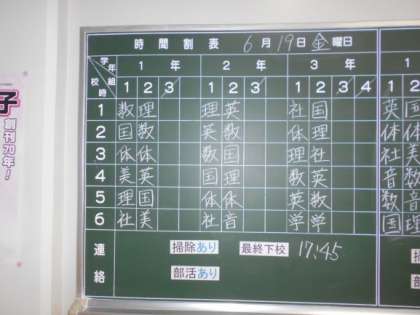 時間割表 6月19日金曜日
学年 組 校時
1年 2年 3年
1 2 3 1 2 3 1 2 3 4 1 2
1 数 理 理 英 社 国 英 国
2 国 数 英 数 体 理 体
3 体 体 数 国 理 社 社 美
4 美 英 国 理 数 英 音 数
5 理 国 体 体 英 数 数 音
6 社 美 社 音 学 学 国 理
連絡 掃除あり 最終下校 17:45
部活あり
子
創刊70年!